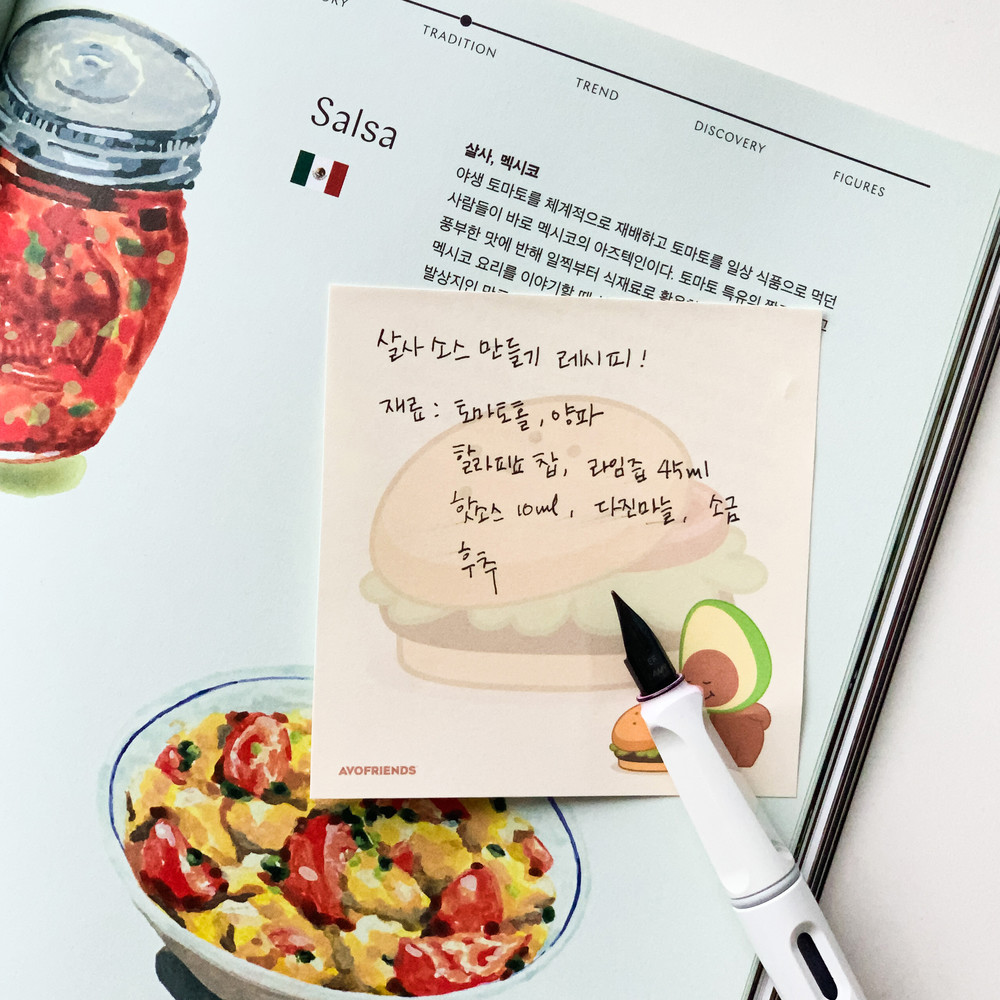 TRADITION
TREND
DISCOVERY
FIGURES
Salsa
살사, 멕시코
야생 토마토를 체계적으로 재배하고 토마토를 일상 식품으로 먹던
사람들이 바로 멕시코의 아즈텍인이다. 토마토 특유의
풍부한 맛에 반해 일찍부터 식재료로
멕시코 요리를 이야기할 때
발상지인
살사 소스 만들기 레시피!
재료: 토마토홀, 양파
할라피뇨 찹, 라임즙 45ml
핫소스 10ml, 다진마늘, 소금
후추
AVOFRIENDS